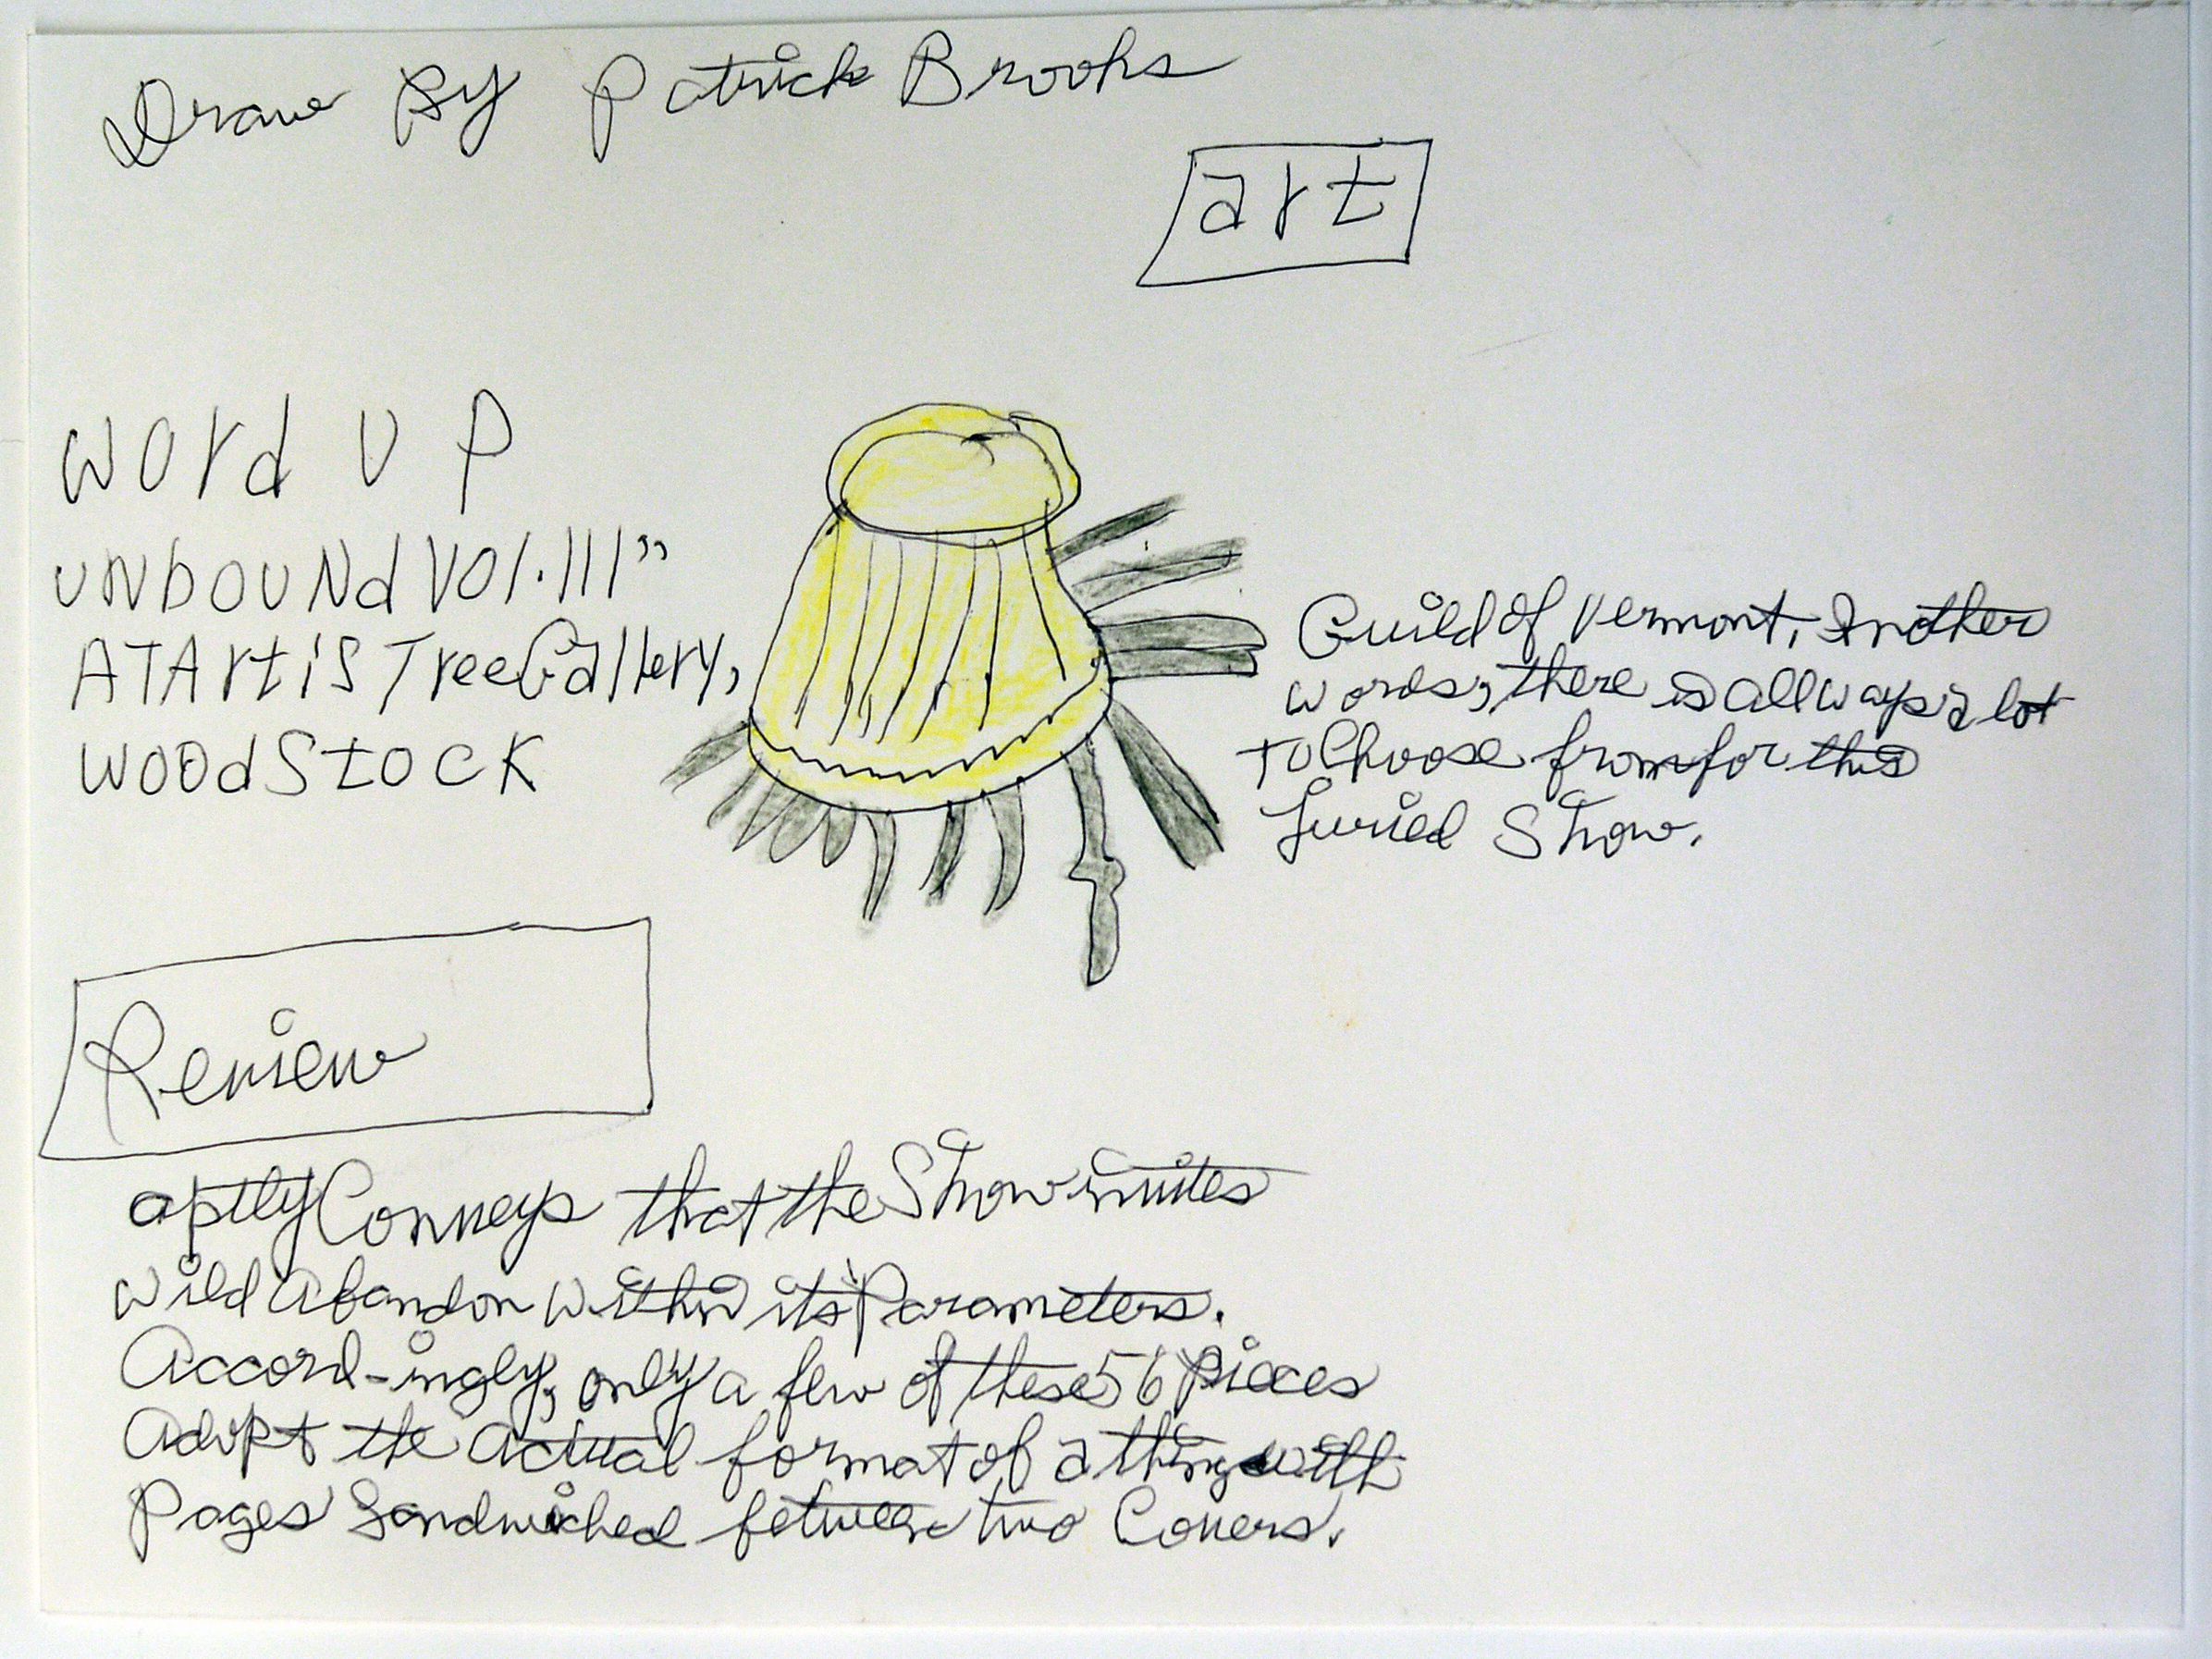 Draw By Patrick Brooks
art
Word UP
UNbOUNd VOl. III"
AT ArtiSTreeGallery,
WOOdStOCK
Guild of Vermont, In other
words, there is allways a lot
To Choose from for this
Juried Show.
Review
aptly Conveys that the Show invites
wild Abandon within its Parameters.
Accord-ingly, only a few of these 56 Pieces
Adopt the actual format of a thing with
Pages Sandwiched between two Covers.